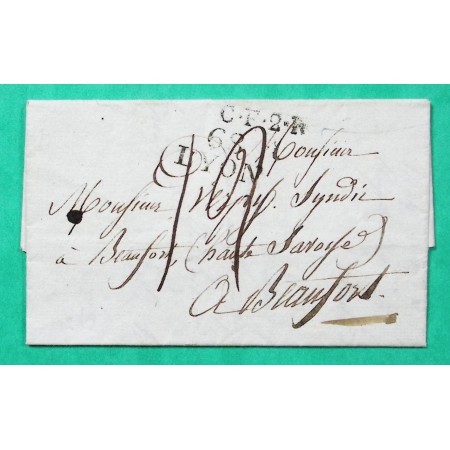 C.F.2.R
68
LYON
Monsieur
Monsieur Syndic
à Beaufort, (haute Savoye)
A Beaufort.